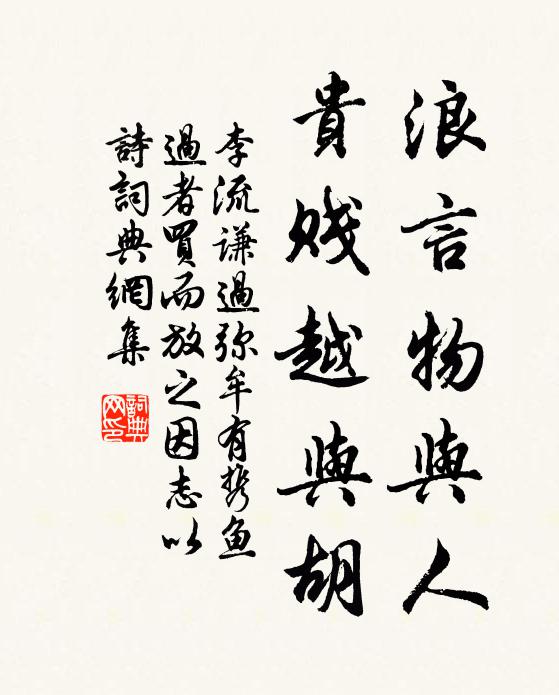 浪言物與人
貴賤越與胡
李流謙過弥牟有携鱼
過者買而放之因志以
詩詞典網集
詞典网印